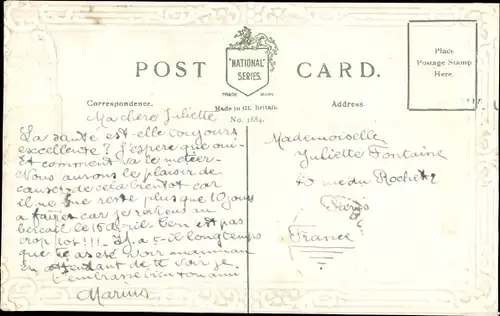 POST CARD.
"NATIONAL" SERIES.
TRADE MARK
Made in Gt. Britain.
No. 1884.
Correspondence.
Address.
Place
Postage Stamp
Here.
Ma chère Juliette
La santé est-elle toujours
excellente? J'espère que oui-
Et comment va le métier-
Nous aurons le plaisir de
causer de cela bientot car
il ne me reste plus que 10 jours
a faire car je reviens au
bercail le 15 avril. C'en est pas
trop tot!!! Il y a t-il longtemps
que tu as été voir maman
En attendant de te voir je
t'embrasse bien ton ami
Marius
Mademoiselle
Juliette Fontaine
rue du Rocher
Paris
France